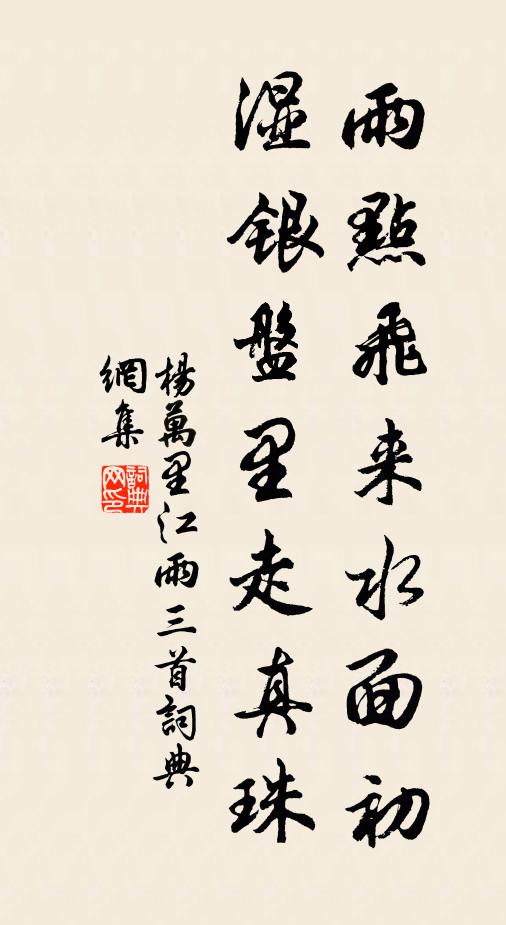 雨點飛来水面初
湿銀盤里走真珠
楊萬里江雨三首詞典
網集
詞典
网印